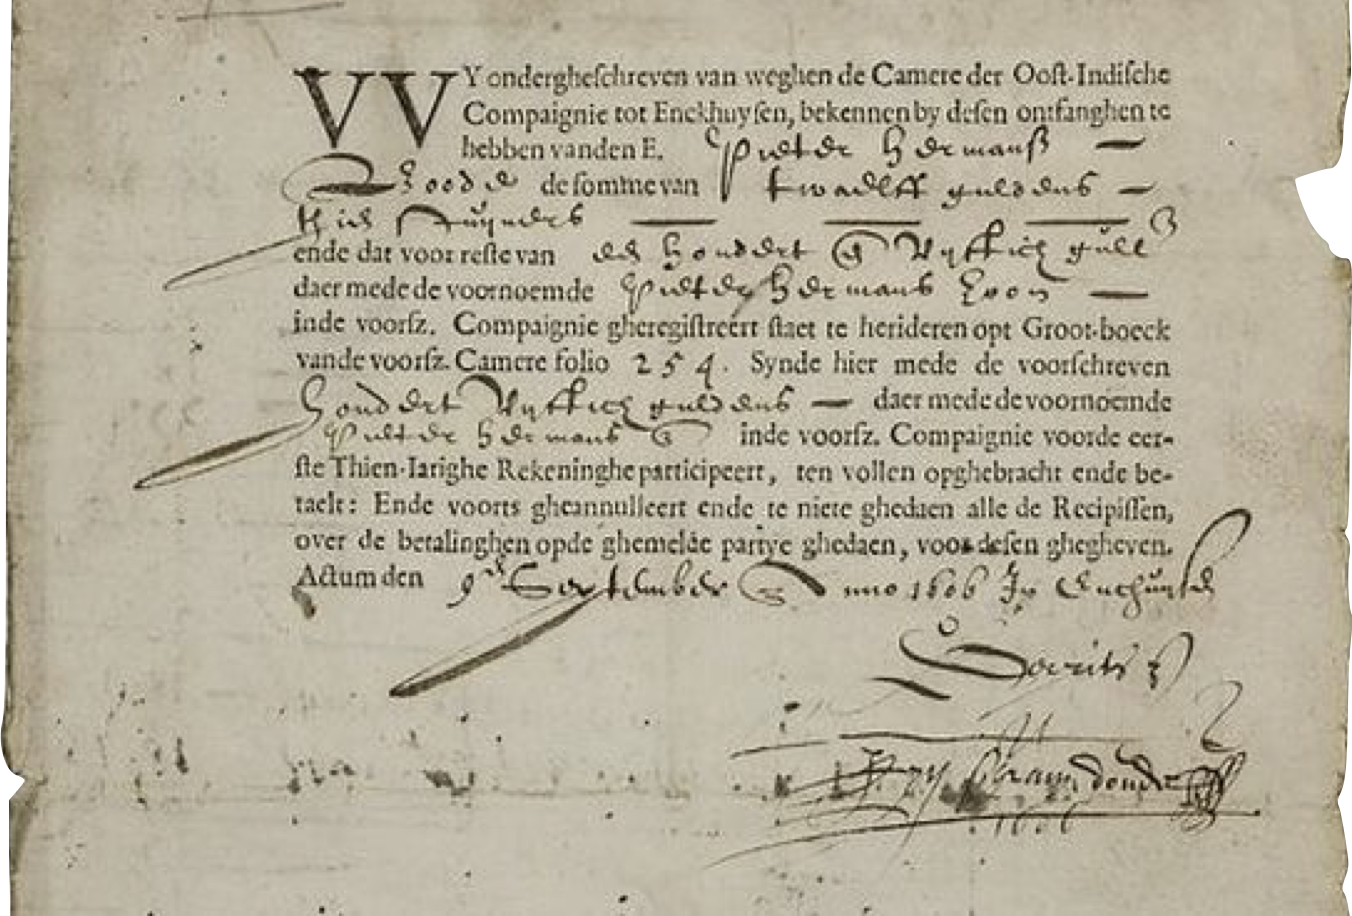 WY ondergheschreven van weghen de Camere der Oost-Indische
Compaignie tot Enckhuysen, bekennen by desen ontfanghen te
hebben vanden E. Pieter Hermansz —
de somme van twaelff guldens —
ende dat voor reste van een hondert Vyftich gull
daer mede de voornoemde Pieter Hermans zoon —
inde voorsz. Compaignie gheregistreert staet te herideren opt Groot-boeck
vande voorsz. Camere folio 254. Synde hier mede de voorschreven
hondert Vyftich guldens — daer mede de voornoemde
Pieter Hermans inde voorsz. Compaignie voor de eer-
ste Thien-Iarighe Rekeninghe participeert, ten vollen opghebracht ende be-
taelt: Ende voorts gheannulleert ende te niete ghedaen alle de Recipissen,
over de betalinghen opde ghemelde partye ghedaen, voor desen ghegheven.
Actum den 9en September Anno 1606 In Enchuysen
1606